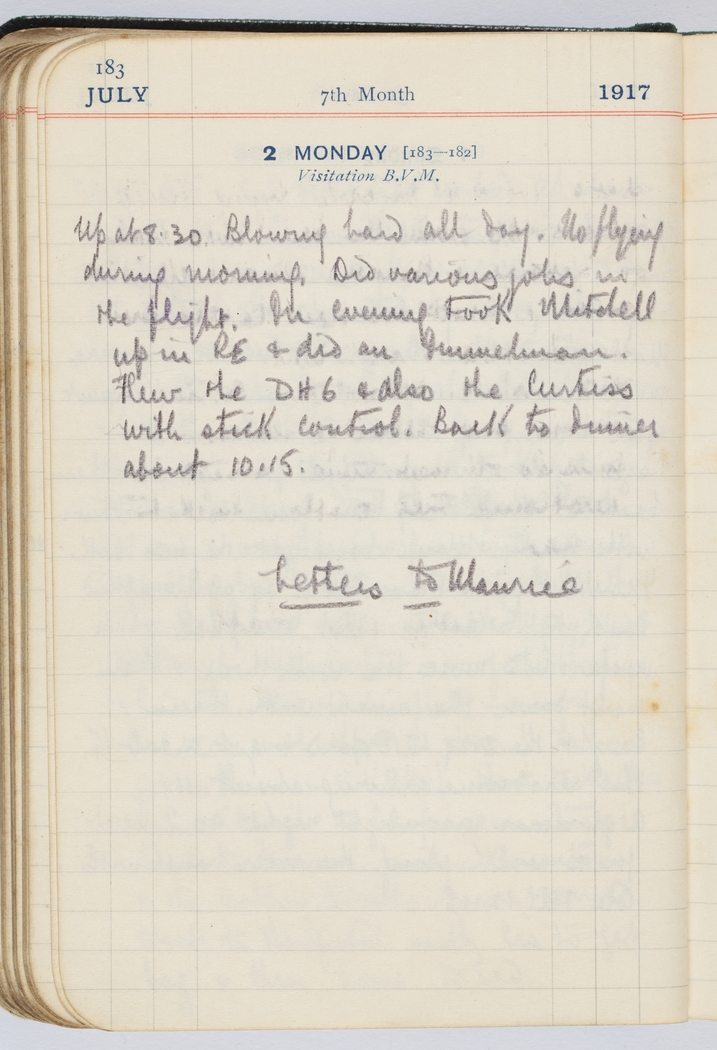 183
JULY 7th Month 1917
2 MONDAY [183—182]
Visitation B.V.M.
Up at 8.30. Blowing hard all day. No flying
during morning. Did various jobs in
the flight. In evening took Mitchell
up in RE & did an Immelman.
Flew the DH6 & also the Curtiss
with stick control. Back to dinner
about 10.15.
Letters to Maurice